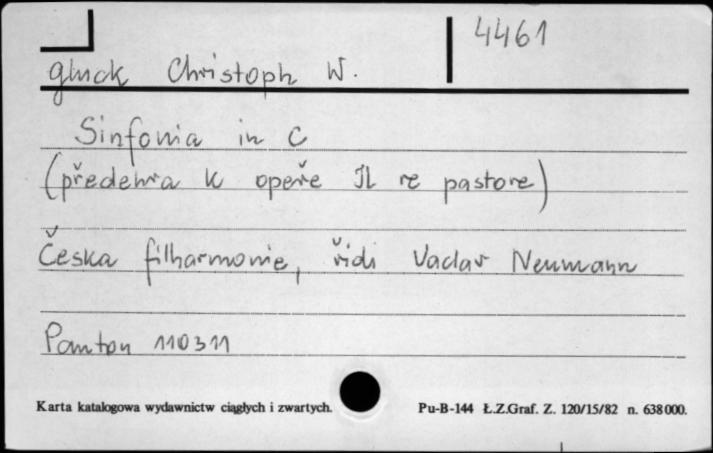 4461
Gluck Christoph W.
Sinfonia in C
(předehra k opeře Il re pastore)
Česka filharmonie, řidi Vaclav Neumann
Panton 110311
Karta katalogowa wydawnictw ciągłych i zwartych. Pu-B-144 Ł.Z.Graf. Z. 120/15/82 n. 638000.